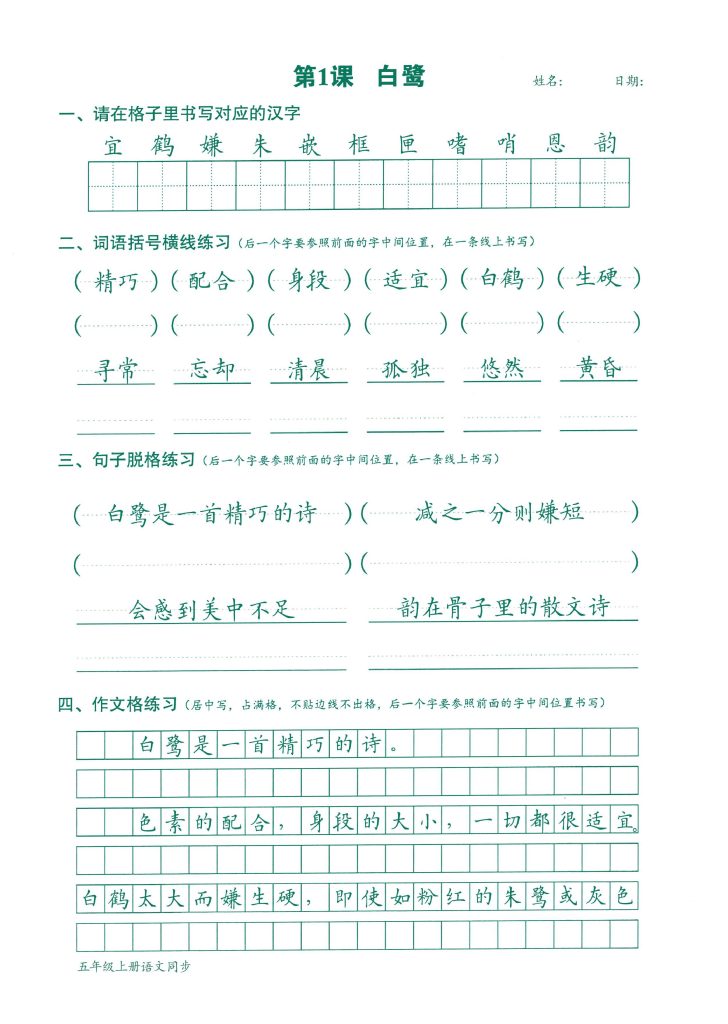 第1课 白鹭
姓名: 日期:
一、请在格子里书写对应的汉字
宜 鹤 嫌 朱 嵌 框 匣 嗜 哨 恩 韵
二、词语括号横线练习（后一个字要参照前面的字中间位置，在一条线上书写）
（精巧）（配合）（身段）（适宜）（白鹤）（生硬）
（ ）（ ）（ ）（ ）（ ）（ ）
寻常 忘却 清晨 孤独 悠然 黄昏
三、句子脱格练习（后一个字要参照前面的字中间位置，在一条线上书写）
（白鹭是一首精巧的诗）（减之一分则嫌短）
（ ）（ ）
会感到美中不足 韵在骨子里的散文诗
四、作文格练习（居中写，占满格，不贴边线不出格，后一个字要参照前面的字中间位置书写）
白鹭是一首精巧的诗。
色素的配合，身段的大小，一切都很适宜。
白鹤太大而嫌生硬，即使如粉红的朱鹭或灰色
五年级上册语文同步